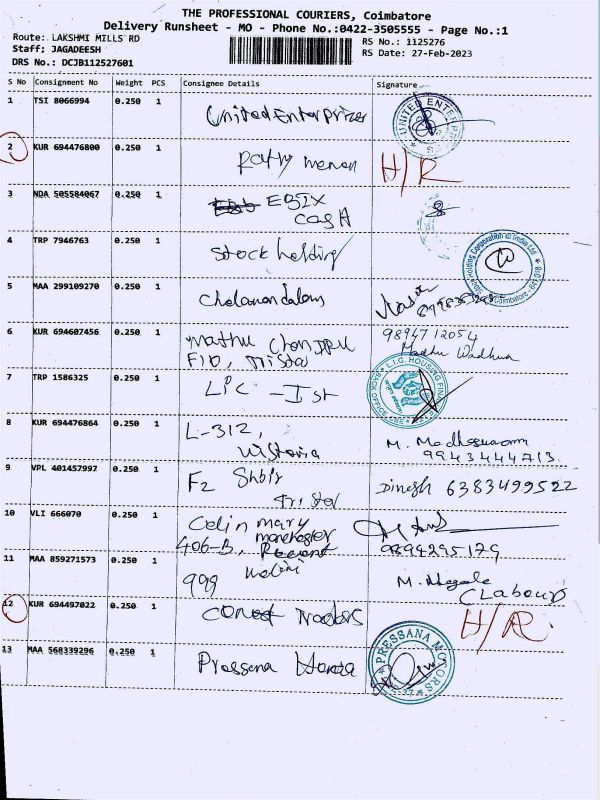 THE PROFESSIONAL COURIERS, Coimbatore
Delivery Runsheet - MO - Phone No.:0422-3505555 - Page No.:1
Route: LAKSHMI MILLS RD
Staff: JAGADEESH
DRS No.: DCJB112527601
RS No.: 1125276
RS Date: 27-Feb-2023
S No Consignment No Weight PCS Consignee Details Signature
1 TSI 8066994 0.250 1 United Enterprizes
UNITED ENTERP
2 KUR 694476800 0.250 1 Pathy menon H/R
3 NDA 505584067 0.250 1 EBIX
cash
4 TRP 7946763 0.250 1 Stock holding
Holding Corporation of India Ltd
Coimbatore
5 MAA 299109270 0.250 1 Cholamandalam
6 KUR 694607456 0.250 1 mathu
F10, Tristar
9894712054
Madhu Wadhwa
7 TRP 1586325 0.250 1 LIC - Ist
L.I.C. HOUSING FIN
BACK OFFICE
8 KUR 694476864 0.250 1 L-312,
Wistoria
M.
9943444713
9 VPL 401457997 0.250 1 F2
Tristar
Dinesh 6383499522
10 VLI 666070 0.250 1 Celin mary
manchester
406-B,
9894295179
11 MAA 859271573 0.250 1 999
M.
CLabour
12 KUR 694497022 0.250 1 H/R
13 MAA 568339296 0.250 1 Prassana
PRESSANA MOTORS